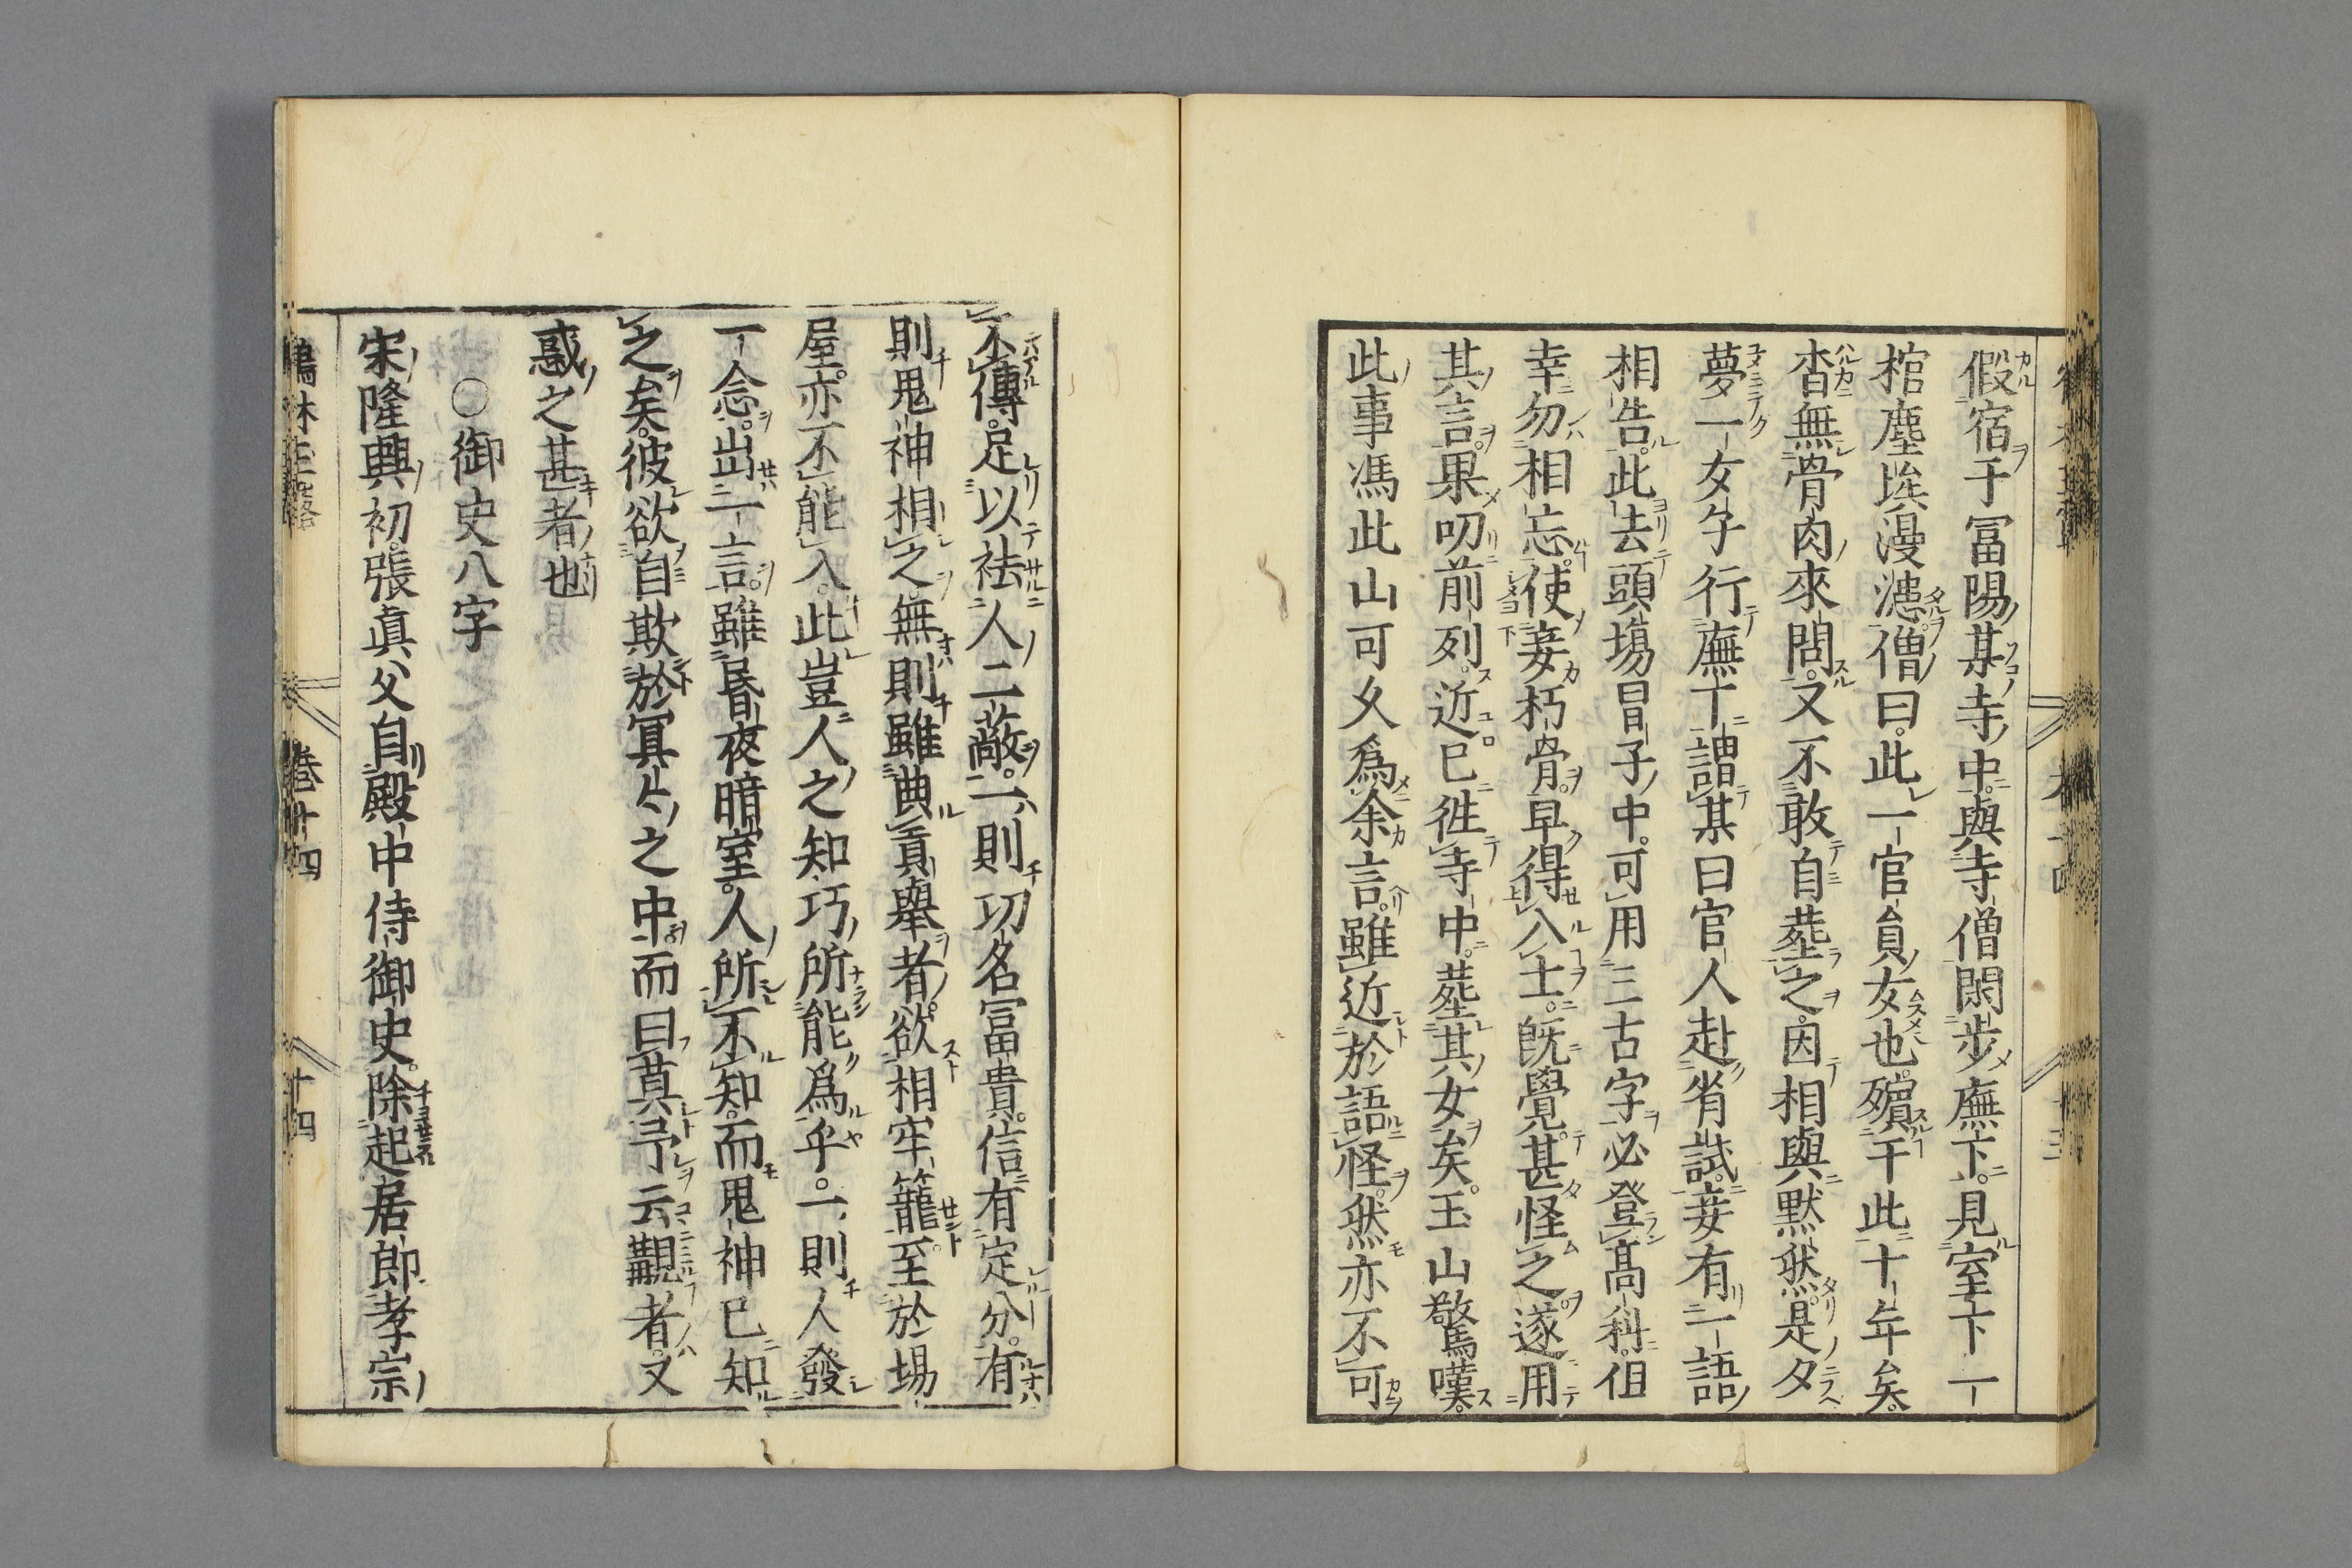 假宿于冨陽某寺中與寺僧閑步廡下見室下一
棺塵埃漫漶僧曰此一官員女也殯于此十年矣
杳無骨肉來問又不敢自塟之因相與默然是夕
夢一女子行廡下謂某曰官人赴省試妾有一語
相告此去頭塲冒子中可用三古字必登髙科但
幸勿相忘使妾朽骨早得入土既覺甚怪之遂用
其言果叨前列近已徃寺中塟其女矣玉山驚嘆
此事馮此山可久爲余言雖近於語怪然亦不可
不傳足以祛人二蔽一則功名冨貴信有定分有
則鬼神相之無則雖曲貢舉者欲相牢籠至於場
屋亦不能入此豈人之知巧所能爲乎一則人發
一念出一言雖昬夜暗室人所不知而鬼神已知
之矣彼欲自欺於冥冥之中而曰莫予云覯者又
惑之甚者也
○御史八字
宋隆興初張眞父自殿中侍御史除起居郎孝宗
鶴林玉露 卷十四 十四